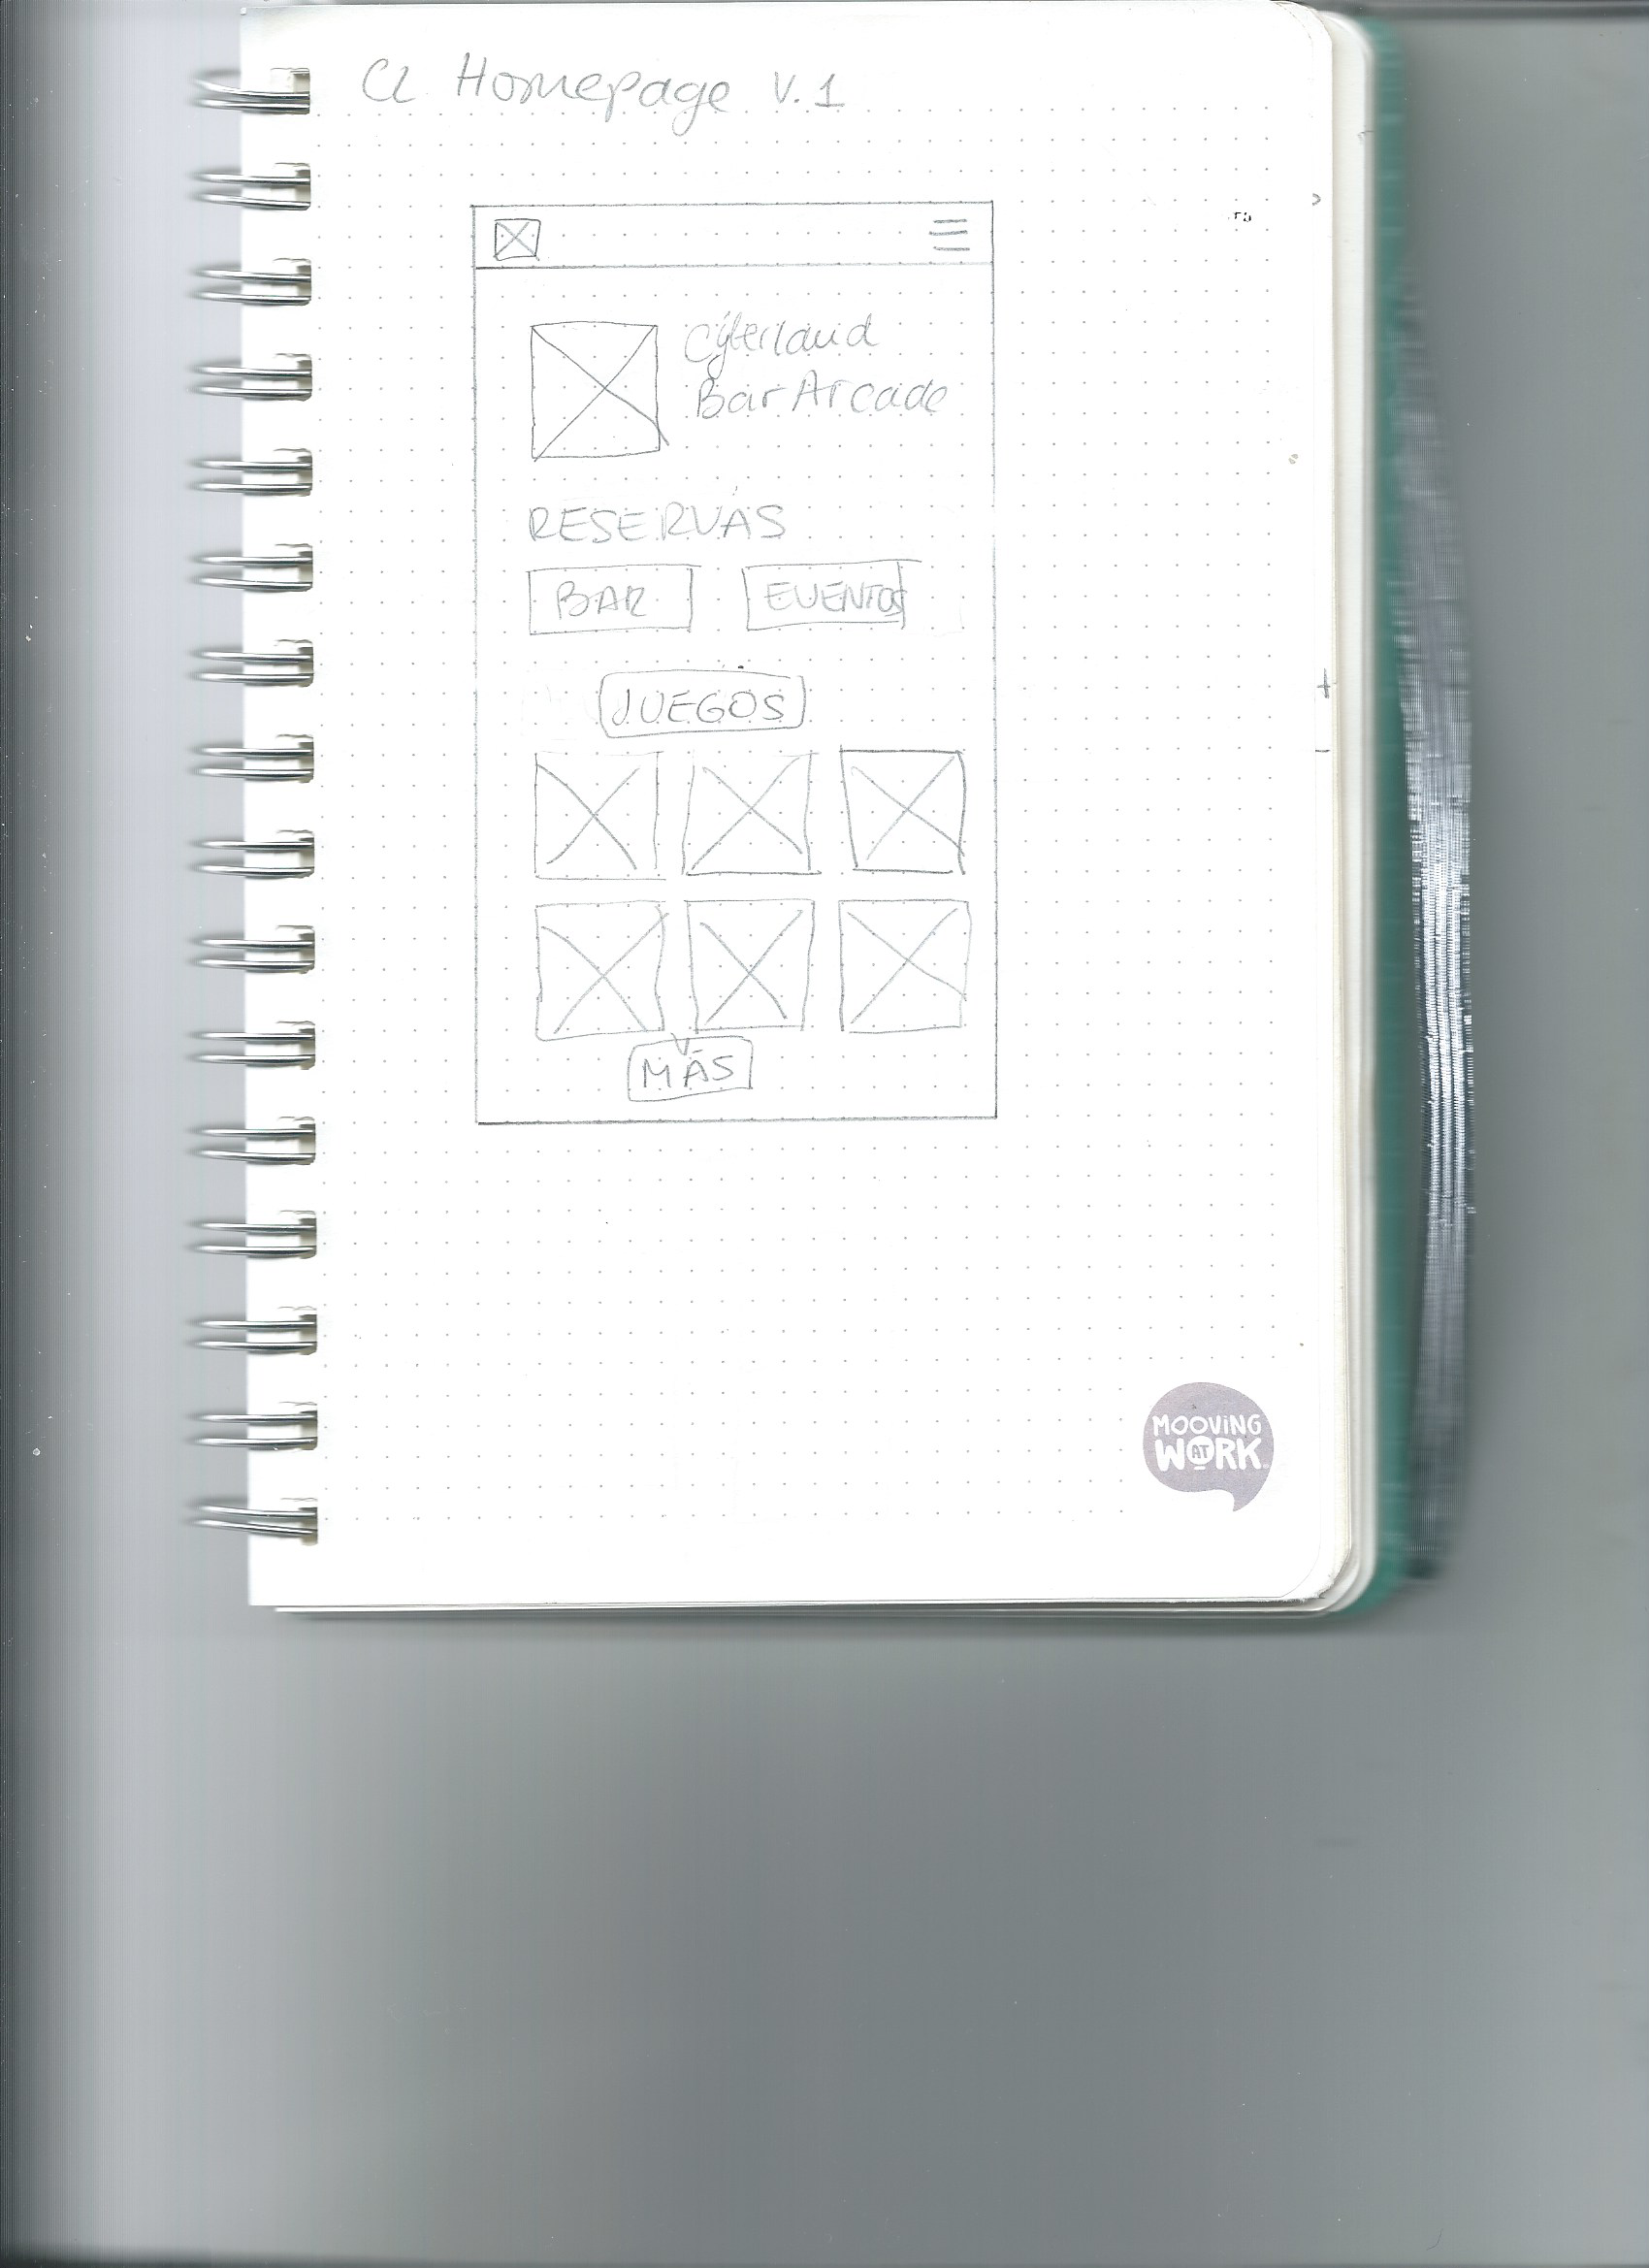 CL Homepage V.1
Cyberland
Bar Arcade
RESERVAS
BAR
EVENTOS
JUEGOS
MÁS
MOOVING
AT
WORK